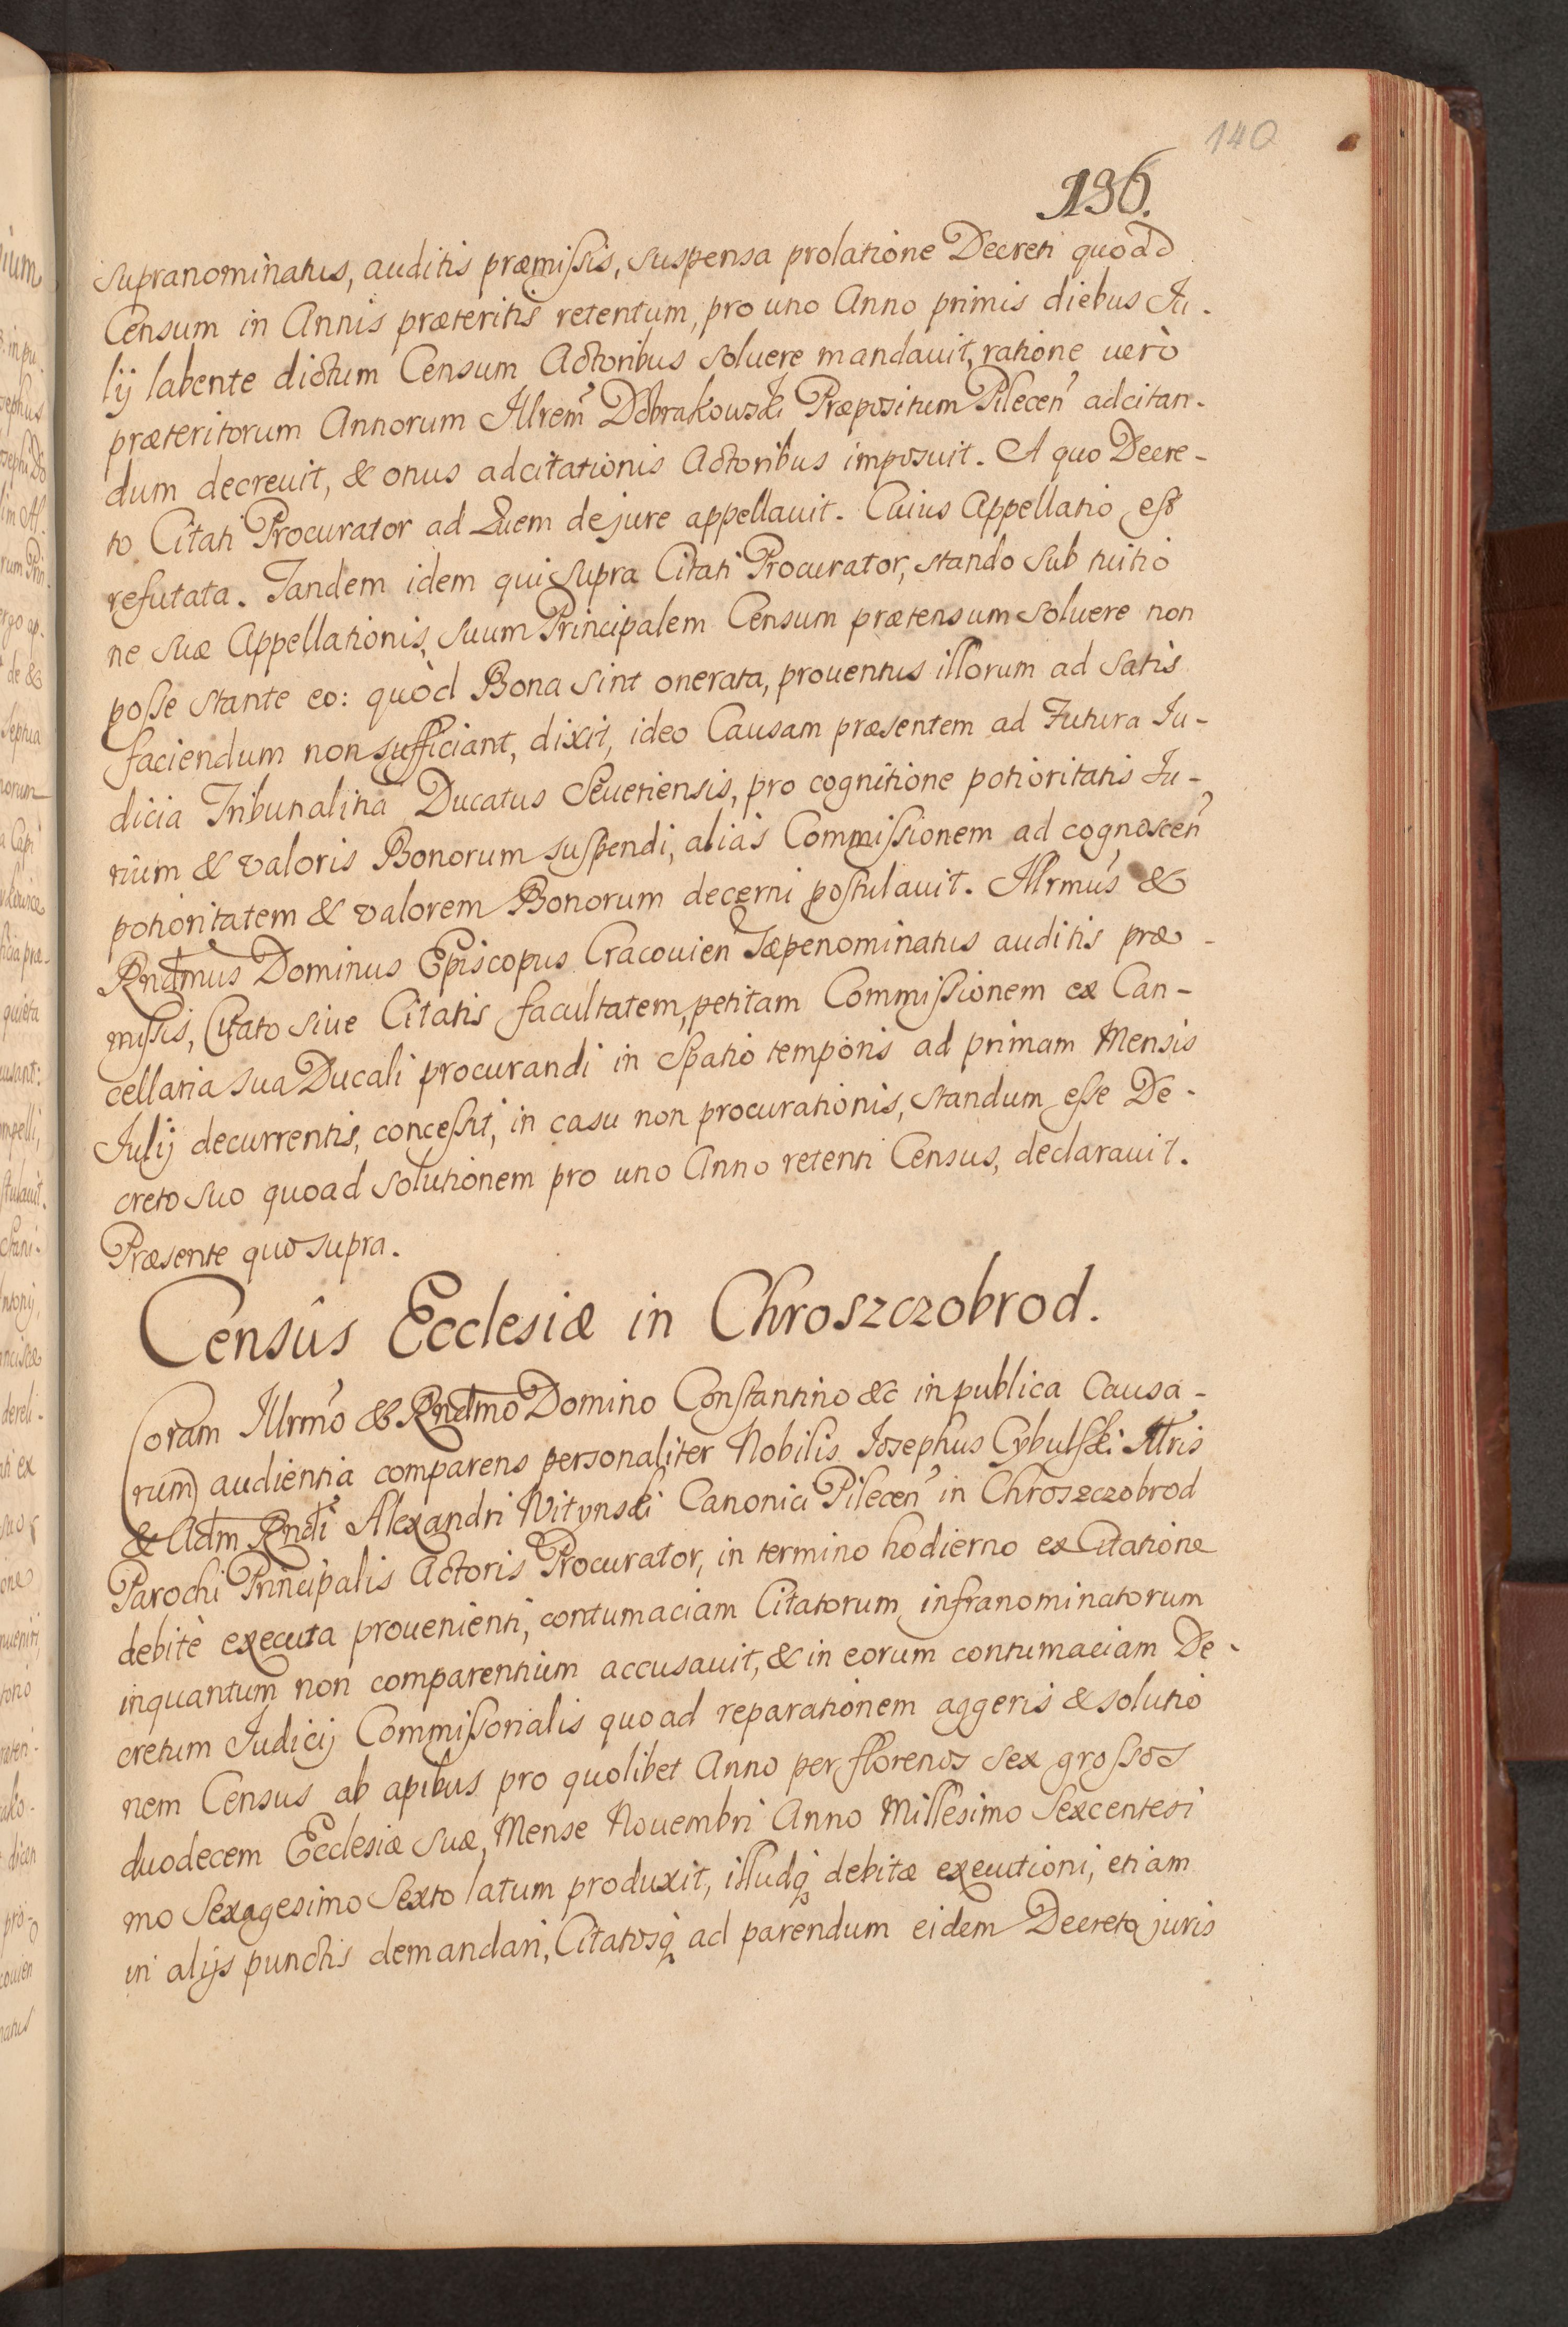 140
136.
supranominatus, auditis præmissis, suspensa prolatione Decreti quoad
Censum in Annis præteritis retentum, pro uno Anno primis diebus Iu-
lij labente dictum Censum Actoribus soluere mandauit, ratione uerò
præteritorum Annorum Illrem Dobrakowski Præpositum Pilecen adcitan-
dum decreuit, & onus adcitationis Actoribus imposuit. A quo Decre-
to Citati Procurator ad Quem de jure appellauit. Cuius Appellatio est
refutata. Tandem idem qui supra Citati Procurator, stando sub tuitio
ne suæ Appellationis, suum Principalem Censum prætensum soluere non
posse stante eo: quòd Bona sint onerata, prouentus illorum ad satis
faciendum non sufficiant, dixit, ideo Causam præsentem ad Futura Iu-
dicia Tribunalitia Ducatus Seueriensis, pro cognitione potioritatis Iu-
rium & valoris Bonorum suspendi, aliàs Commissionem ad cognoscen
potioritatem & valorem Bonorum decerni postulauit. Illrmus &
Rndmus Dominus Episcopus Cracouien sæpenominatus auditis præ-
missis, Citato siue Citatis facultatem, petitam Commissionem ex Can-
cellaria sua Ducali procurandi in spatio temporis ad primam Mensis
Iulij decurrentis, concessit, in casu non procurationis, standum esse De-
creto suo quoad solutionem pro uno Anno retenti Census, declarauit.
Præsente quo supra.
Censûs Ecclesiæ in Chroszczobrod.
Coram Illrmo & Rndmo Domino Constantino &c in publica Causa-
rum audientia comparens personaliter Nobilis Iosephus Cybulski Illris
& Adm Rndi Alexandri Witynski Canonici Pilecen in Chroszczobrod
Parochi Principalis Actoris Procurator, in termino hodierno ex Citatione
debitè executa prouenienti, contumaciam Citatorum infranominatorum
inquantum non comparentium accusauit, & in eorum contumaciam De-
cretum Iudicij Commissorialis quoad reparationem aggeris & solutio
nem Census ab apibus pro quolibet Anno per florenos sex grossos
duodecem Ecclesiæ suæ, Mense Nouembri Anno Millesimo Sexcentesi
mo Sexagesimo Sexto latum produxit, illudq debitæ executioni, etiam
in alijs punctis demandari, Citatosq ad parendum eidem Decreto juris